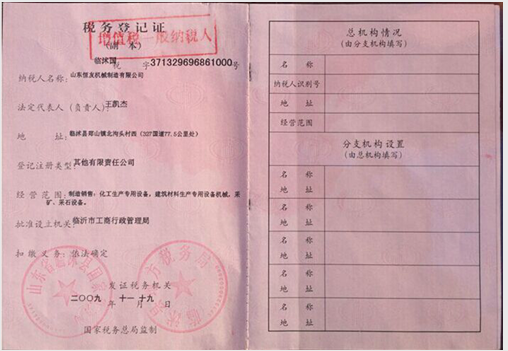 税务登记证
(副本)
增值税一般纳税人
临沭国 税 字 371329696861000号
纳税人名称: 山东恒友机械制造有限公司
法定代表人(负责人): 王凯杰
地 址: 临沭县郑山镇北沟头村西(327国道77.5公里处)
登记注册类型: 其他有限责任公司
经营范围: 制造销售:化工生产专用设备,建筑材料生产专用设备机械,采
矿、采石设备。
批准设立机关: 临沂市工商行政管理局
扣缴义务: 依法确定
发证税务机关
二〇〇九 年 十一 月 十九 日
国家税务总局监制
总机构情况
(由分支机构填写)
名 称
纳税人识别号
地 址
经营范围
分支机构设置
(由总机构填写)
名 称
地 址
名 称
地 址
名 称
地 址
名 称
地 址
名 称
地 址